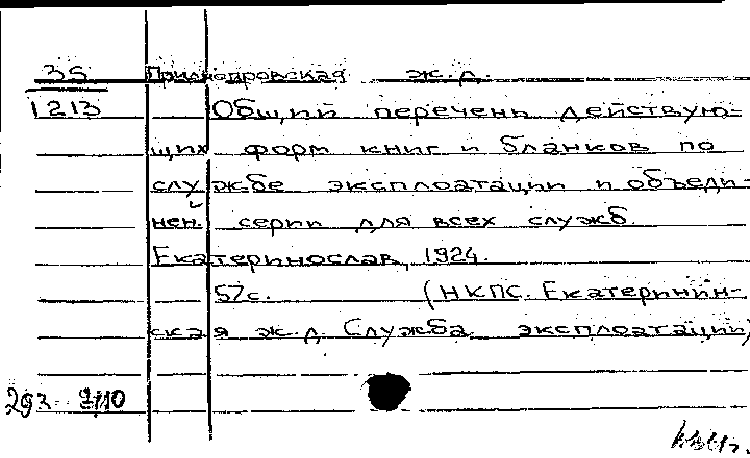 35 Приднепровская ж.д.
1213 Общий перечень действую-
щих форм книг и бланков по
службе эксплоатации и объеди-
нен. серии для всех служб
Екатеринослав, 1924.
57с. (НКПС. Екатеринин-
ская ж.д. Служба эксплоатации)
2 1110